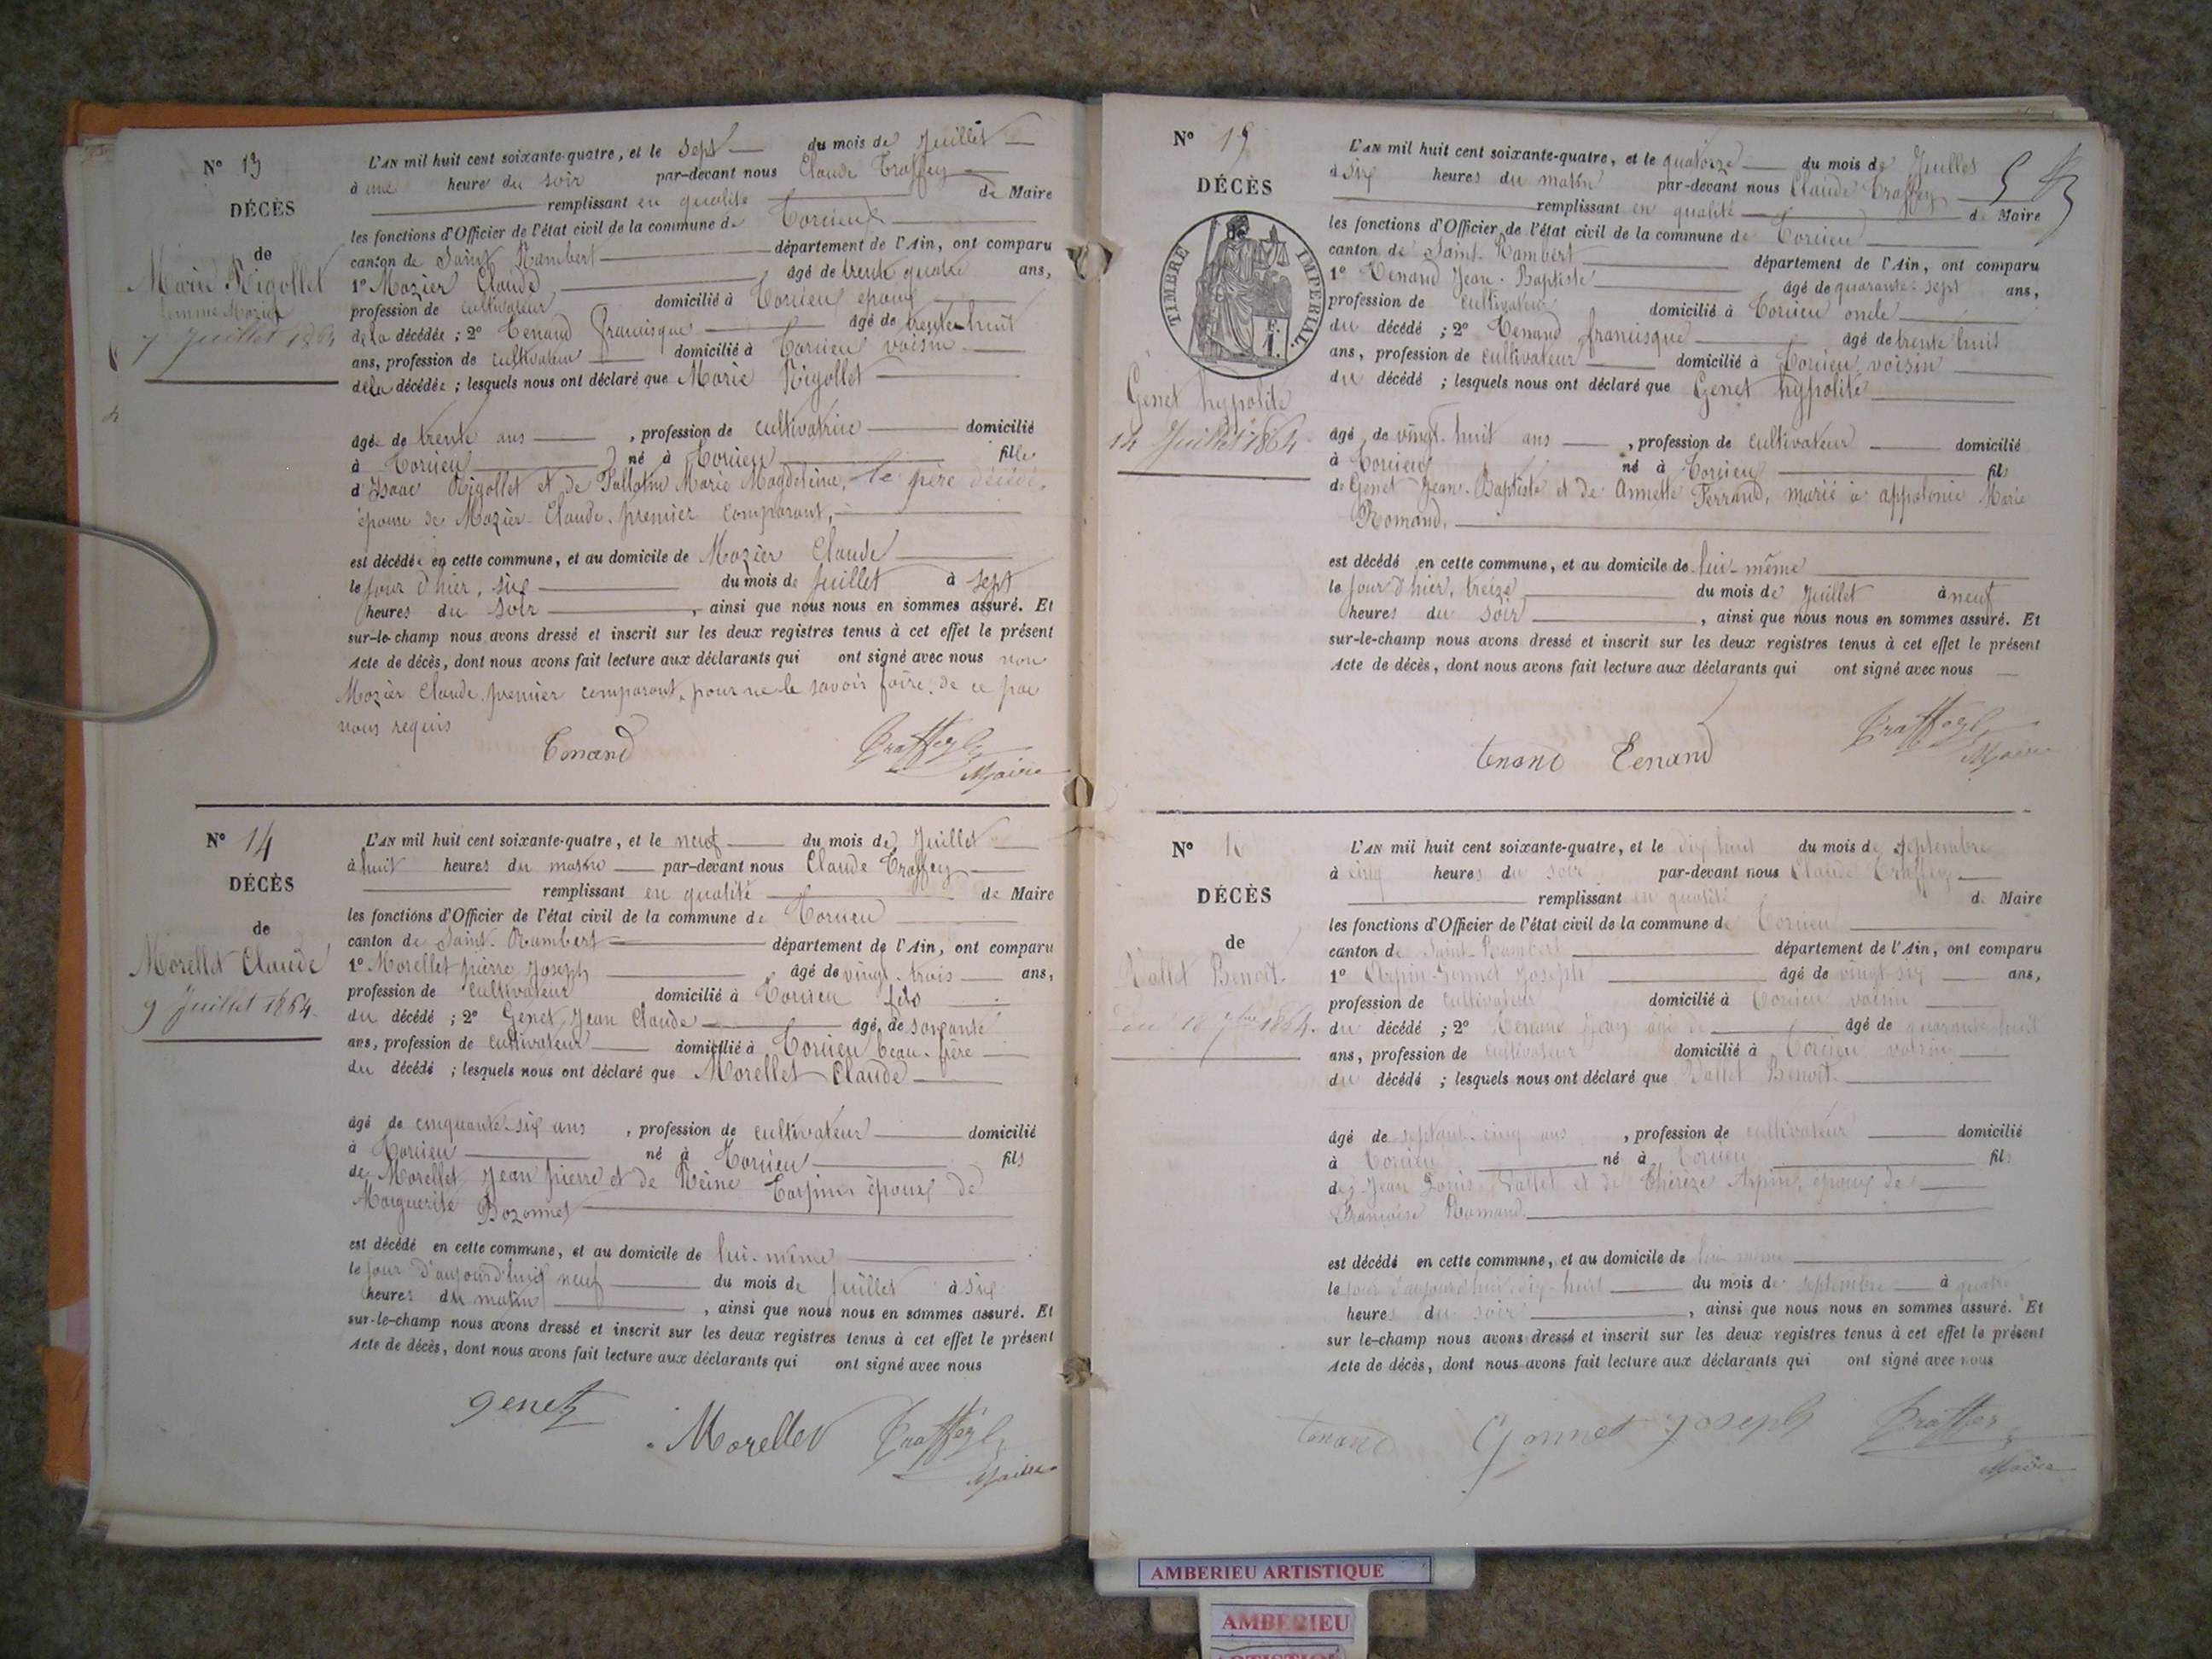 N° 13
DÉCÈS
de
Marie Rigollet
femme Mozier
7 Juillet 1864
L'AN mil huit cent soixante-quatre, et le sept du mois de Juillet
à une heure du soir par-devant nous Claude Traffey
remplissant en qualité de Maire
les fonctions d'Officier de l'état civil de la commune de Torcieu
canton de Saint Rambert département de l'Ain, ont comparu
1° Mozier Claude, âgé de trente quatre ans,
profession de cultivateur domicilié à Torcieu époux
de la décédée ; 2° Tenand françisque âgé de trente-huit
ans, profession de cultivateur domicilié à Torcieu voisin
de la décédée ; lesquels nous ont déclaré que Marie Rigollet
âgée de trente ans, profession de cultivatrice domicilié
à Torcieu né à Torcieu fille
d'Isaac Rigollet et de Marie Magdeleine, le père décédé,
épouse de Mozier Claude, premier comparant,
est décédée en cette commune, et au domicile de Mozier Claude
le jour d'hier, six du mois de Juillet à sept
heures du soir, ainsi que nous nous en sommes assuré. Et
sur-le-champ nous avons dressé et inscrit sur les deux registres tenus à cet effet le présent
Acte de décès, dont nous avons fait lecture aux déclarants qui ont signé avec nous non
Mozier Claude premier comparant, pour ne le savoir faire, de ce par
nous requis
Tenand Traffey
Maire
N° 14
DÉCÈS
de
Morellet Claude
9 Juillet 1864
L'AN mil huit cent soixante-quatre, et le neuf du mois de Juillet
à huit heures du matin par-devant nous Claude Traffey
remplissant en qualité de Maire
les fonctions d'Officier de l'état civil de la commune de Torcieu
canton de Saint-Rambert département de l'Ain, ont comparu
1° Morellet pierre Joseph âgé de vingt-trois ans,
profession de cultivateur domicilié à Torcieu fils
du décédé ; 2° Genet Jean Claude âgé de soixante
ans, profession de cultivateur domicilié à Torcieu beau-frère
du décédé ; lesquels nous ont déclaré que Morellet Claude
âgé de cinquante-six ans, profession de cultivateur domicilié
à Torcieu né à Torcieu fils
de Morellet Jean pierre et de Reine époux de
Marguerite Bozonnet
est décédé en cette commune, et au domicile de lui-même
le jour d'aujourd'hui neuf du mois de Juillet à six
heures du matin, ainsi que nous nous en sommes assuré. Et
sur-le-champ nous avons dressé et inscrit sur les deux registres tenus à cet effet le présent
Acte de décès, dont nous avons fait lecture aux déclarants qui ont signé avec nous
genet
Morellet Traffey
Maire
N° 15
DÉCÈS
TIMBRE IMPERIAL
Genet hypolite
14 Juillet 1864
L'AN mil huit cent soixante-quatre, et le quatorze du mois de Juillet
à six heures du matin par-devant nous Claude Traffey
remplissant en qualité de Maire
les fonctions d'Officier de l'état civil de la commune de Torcieu
canton de Saint-Rambert département de l'Ain, ont comparu
1° Tenand Jean-Baptiste âgé de quarante-sept ans,
profession de cultivateur domicilié à Torcieu oncle
du décédé ; 2° Tenand francisque âgé de trente huit
ans, profession de cultivateur domicilié à Torcieu voisin
du décédé ; lesquels nous ont déclaré que Genet hypolite
âgé de vingt-huit ans, profession de cultivateur domicilié
à Torcieu né à Torcieu fils
de Genet Jean-Baptiste et de Annette Ferrand, marié à appolonie Marie
Romand,
est décédé en cette commune, et au domicile de lui-même
le jour d'hier, treize du mois de Juillet à neuf
heures du soir, ainsi que nous nous en sommes assuré. Et
sur-le-champ nous avons dressé et inscrit sur les deux registres tenus à cet effet le présent
Acte de décès, dont nous avons fait lecture aux déclarants qui ont signé avec nous
tenand Tenand Traffey
Maire
N° 16
DÉCÈS
de
Vallet Benoit
du 18 7bre 1864.
L'AN mil huit cent soixante-quatre, et le dix huit du mois de Septembre
à cinq heures du soir par-devant nous Claude Traffey
remplissant en qualité de Maire
les fonctions d'Officier de l'état civil de la commune de Torcieu
canton de Saint-Rambert département de l'Ain, ont comparu
1° Arpin-Gonnet Joseph âgé de vingt-six ans,
profession de cultivateur domicilié à Torcieu voisin
du décédé ; 2° Tenand Jean âgé de âgé de quarante huit
ans, profession de cultivateur domicilié à Torcieu voisin
du décédé ; lesquels nous ont déclaré que Vallet Benoit.
âgé de septante-cinq ans, profession de cultivateur domicilié
à Torcieu né à Torcieu fils
de Jean Louis Vallet et de Thérèze Arpin, époux de
Françoise Romand.
est décédé en cette commune, et au domicile de lui même
le jour d'aujourd'hui, dix-huit du mois de septembre à quatre
heures du soir, ainsi que nous nous en sommes assuré. Et
sur le-champ nous avons dressé et inscrit sur les deux registres tenus à cet effet le présent
Acte de décès, dont nous avons fait lecture aux déclarants qui ont signé avec nous
tenand Gonnet Joseph Traffey
Maire
AMBERIEU ARTISTIQUE
AMBERIEU
ARTISTIQUE